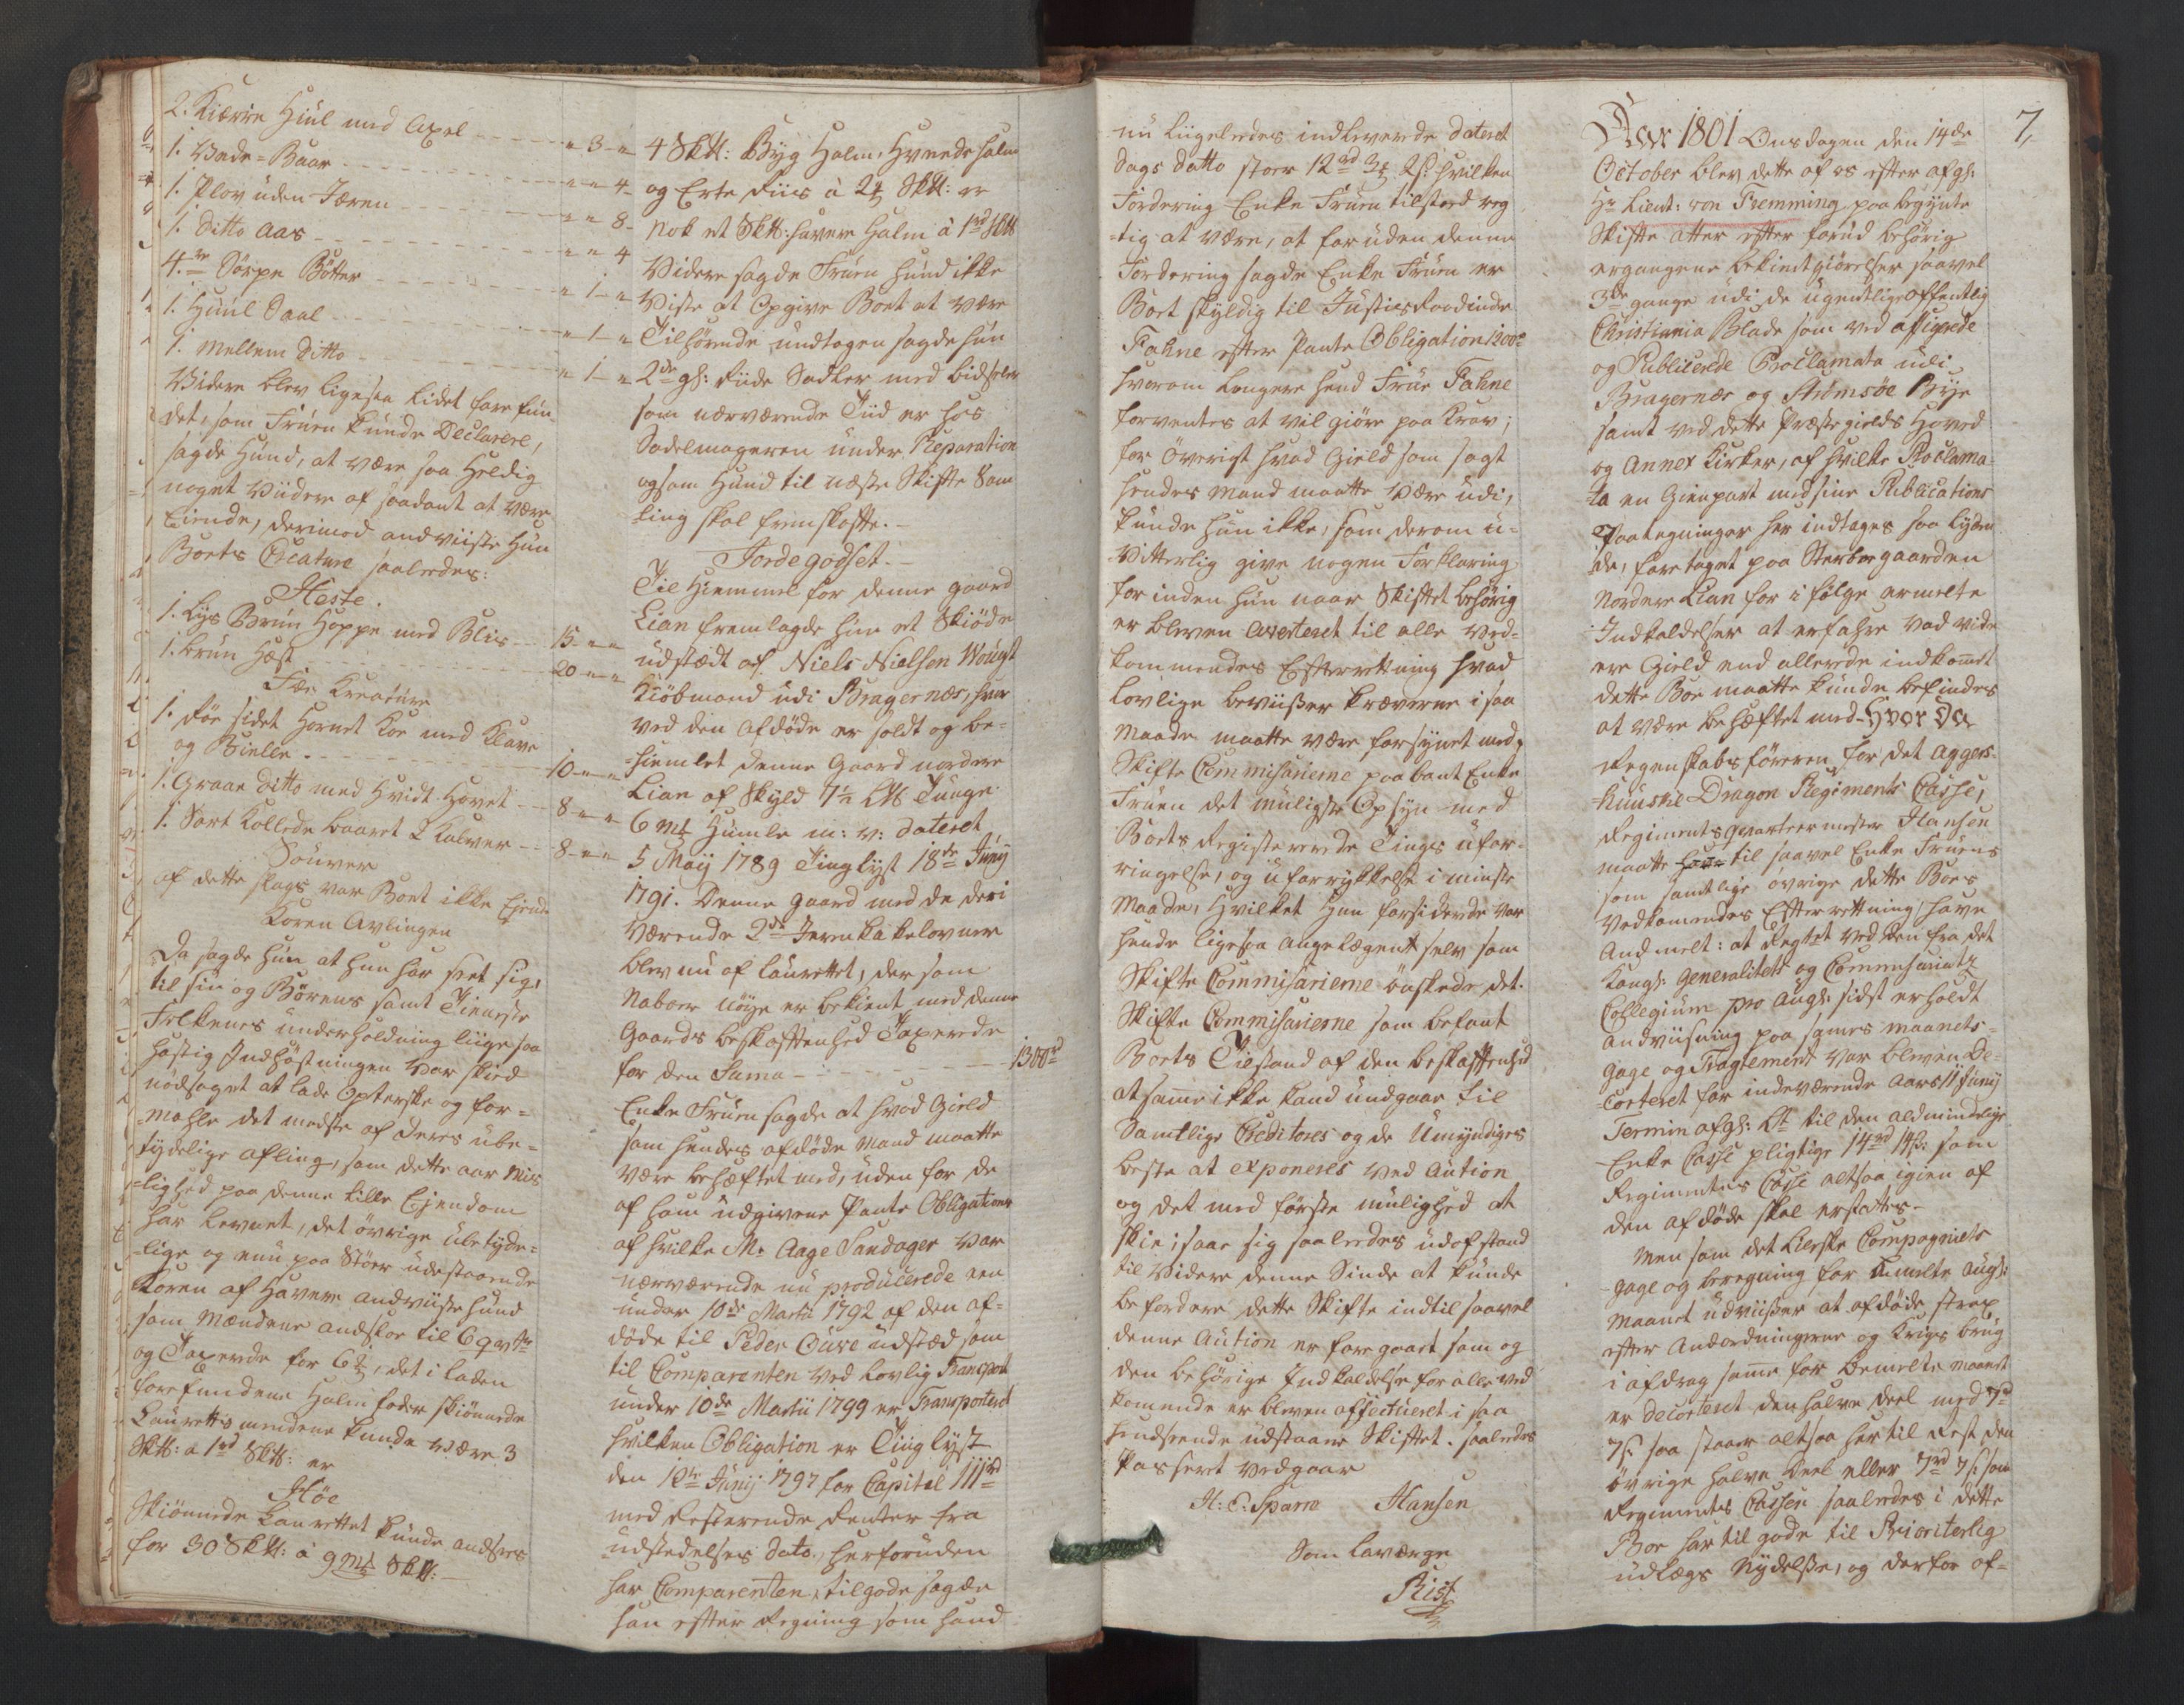 2. Kierre Hiul med Axel - - - " 3 - "
1. Bade-Baar - - - " " 4 -
1. Plov uden Jæren - - - " " 8 -
1. Ditto Aas - - - " " 4
4re Sørpe Bøtter - - - " 1 - "
1. Huul Saal - - - " 1 - "
1. Mellem Ditto - - - " 1 - "
Videre blev ligesaa lidet forefun-
det, som Fruen kunde Declarere,
sagde Hund, at være saa Heldig
noget Viidere af saadant at være
Eiende, derimod andviiste Hun
Boets Creature saaledes:
Heste.
1. Lys Bruun Hoppe med Blis - - 15 - " "
1. bruun Hest - - - 20 - " "
Fæe Kreature
1. Røe sidet Hornet Koe med Klave
og Bielle. - - - 10 - " "
1. Graae Ditto med Hvidt Hovet - - 8 - " "
1. Sort Kollede baaret 2 Kalver - - 8 - " "
Souver
af dette slags var Boet ikke Ejende
Koren Avlingen
Da sagde Hun at hun har seet sig,
til sin og Børens samt Tieneste
Folkenes underholdning liigesaa
hastig Indhøstningen var skied
nødsaget at lade Opterske og for-
mahle det meste af deres übe-
tydelige afling, som dette aar Mis
lighed paa denne lille Ejendom
har levnet, det øvrige ubetyde-
lige og enu paa Støer udestaaende
Koren af Havere andviiste hund
som Mændene andslog til 6 qvtr
og Taxerede for 6 rd, det i laden
forefundene Halm foder skiønnede
Laurettsmendene kunde være 3
Sktt: a 1rd Sktt: er
Høe
Skiønnede Laurettet kunde ansees
for 30 Sktt: à 9 mk Sktt: -
4 Sktt: Byg Halm, Hvedehalm
og Erte Riis à 2 mk Sktt: er
Nok et Sktt: havere Halm à 1rd Sktt
Videre sagde Fruen hund ikke
Viste at Opgive Boet at være
Tilhørende undtagen sagde hun
2de gl: Riide Sadler med bidseler
som nærværende Tiid er hos
Sadelmageren under Reparation
og som Hund til næste Skifte Sam
ling skal fremskaffe. -
Jordegodset. -
Til Hiemmel for denne gaard
Lian fremlagde hun et Skiøde
udstædt af Niels Nielsen Wougt
Kiøbmand udi Bragernæs, hvor
ved den Afdøde er soldt og be-
hiemlet denne Gaard nordere
Lian af Skyld 7½ Lb Tunge
6 mk Humle m: v: dateret
5 Maij 1789 Tinglyst 18de Junij
1791. Denne gaard med de deri
Værende 2de Jernkakelovner
blev nu af laurettet, der som
Naboer nøye er bekient med denne
Gaards beskaffenhed Taxerede
for den Suma - - - 1300rd
Enke Fruen sagde at hvad Gield
som hendes afdøde Mand maatte
være behæftet med, uden for de
af ham udgivne Pante Obligationer
af hvilke Mr Aage Sandager var
nærværende nu producerede een
under 10de Martii 1792 af den af-
døde til Peder Cure udstæd som
til Comparenten ved lovlig Transport
under 10de Martii 1799 er Transporteret
hvilken Obligation er Tinglyst
den 12te Junij 1797 for Capital 111rd
med Resterende Renter fra
udstedelses Dato, herforuden
har Comparenten, tilgode sagde
han efter Regning som hand
nu liigeledes indleverede Dateret
Dags Datto stoer 12rd 3 mk 2 s. hvilken
Fordering Enke Fruen tilstod rig
tig at være, at foruden denne
Fordering sagde Enke Fruen er
Boet skyldig til Justiesraadinde
Fahne efter Pante Obligation 1200rd
hvorom længere hend Frue Fahne
forventes at vil giøre paa Krav;
for øvrigt hvad Gield som sagt
hendes mand maatte være udi,
kunde hun ikke, som derom u-
vitterlig give nogen Forklaring
for inden hun naar Skiftet behørig
er bleven averteret til alle Ved-
kommendes Efterretning hvad
lovlige beviisser kræverne i saa
Maade maatte være forsynet med,
Skifte Commisarierne paabant Enke
Fruen det muligste Opsyn med
Boets Registerede Tings ufor-
ringelse, og uforrykkelse i minste
Maade, Hvilket Hun forsikrede var
hende ligesaa angelægent selv som
Skifte Commisarierne ønskede det.
Skifte Commisarierne som befant
Boets Tilstand af den beskaffenhed
at same ikke kand undgaae til
Samtlige Creditores og de Umyndiges
beste at exponeres ved Aution
og det med første mulighed at
skie; saae sig saaledes udaf stand
til Videre denne Sinde at kunde
befordre dette Skifte indtil saavel
denne Aution er foregaaet som og
den behørige Indkaldelse for alle ved
komende er bleven affectueret i saa
henseende udstaaer Skiftet. saaledes
Passeret vedgaar
H: C: Sparre Hansen
Som laværge
Rist
7,
Aar 1801 Onsdagen den 14de
October blev dette af os efter afg:
Hr Lieut: von Fremming paa begynte
Skifte atter efter forud behørig
ergangene bekiendtgiørelser saavel
3de gange udi de ugentlige offentlig
Christiania Blade som ved affigerede
og Publicerede Proclamata udi
Bragernæs og Strømsøe Bÿe
samt ved dette Præstegields Hoved
og Annex Kirker, af hvilke Proclama-
ta en Gienpart med sine Publications
Paategninger her indtages saa lyden
de, foretaget paa Sterboegaarden
Nordere Lian for i følge ermelte
Indkaldelser at erfahre vad vide
ere Gield end allerede indkomet
dette Boe maatte kunde befindes
at være behæftet med - Hvor Da
Regenskabsføreren for det Aggers-
huuske Dragon Regiments Casse,
Regimentsqvarteermester Hansen
maatte til saavel Enke Fruens
som samtlige øvrige dette Boes
Vedkomendes Efterretning have
Andmelt: at Registret ved den fra det
Kongl: Generalitets og Commisariats
Collegium pro Augl: sidst erholdt
andviisning paa somes maanets-
gage og Tragtement var bleven De-
Corteret for indeværende Aars 11 Junij
Termin afgl: Lt til den almindelige
Enke Casse pligtige 14rd 14 s: som
Regimentes Casse altsaa igien af
den afdøde skal erstattes -
Men som det Lierske Compagniets
Gage og beregning for Anmelte Augl:
Maanet udviisser at afdøde strax
efter Anordningerne og Kriigs brug
i afdrag same for bemelte maanet
er decorteret den halve deel med 7rd
7 s: saa staaer altsaa hertil Rest den
øvrige halve deel eller 7rd 7 s: som
Regimentes Cassen saaledes i dette
Boe har til gode til Prioriterlig
udlægs Nydelse, og derfor af-